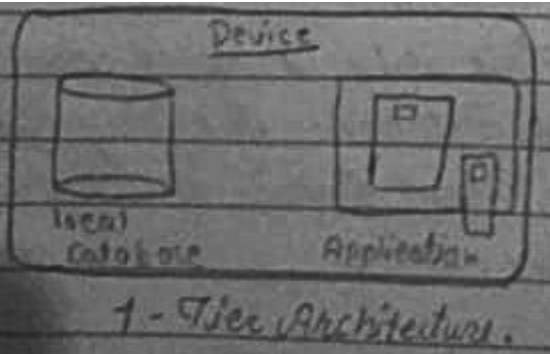 Device
local
Database
Application
1-Tier Architecture.